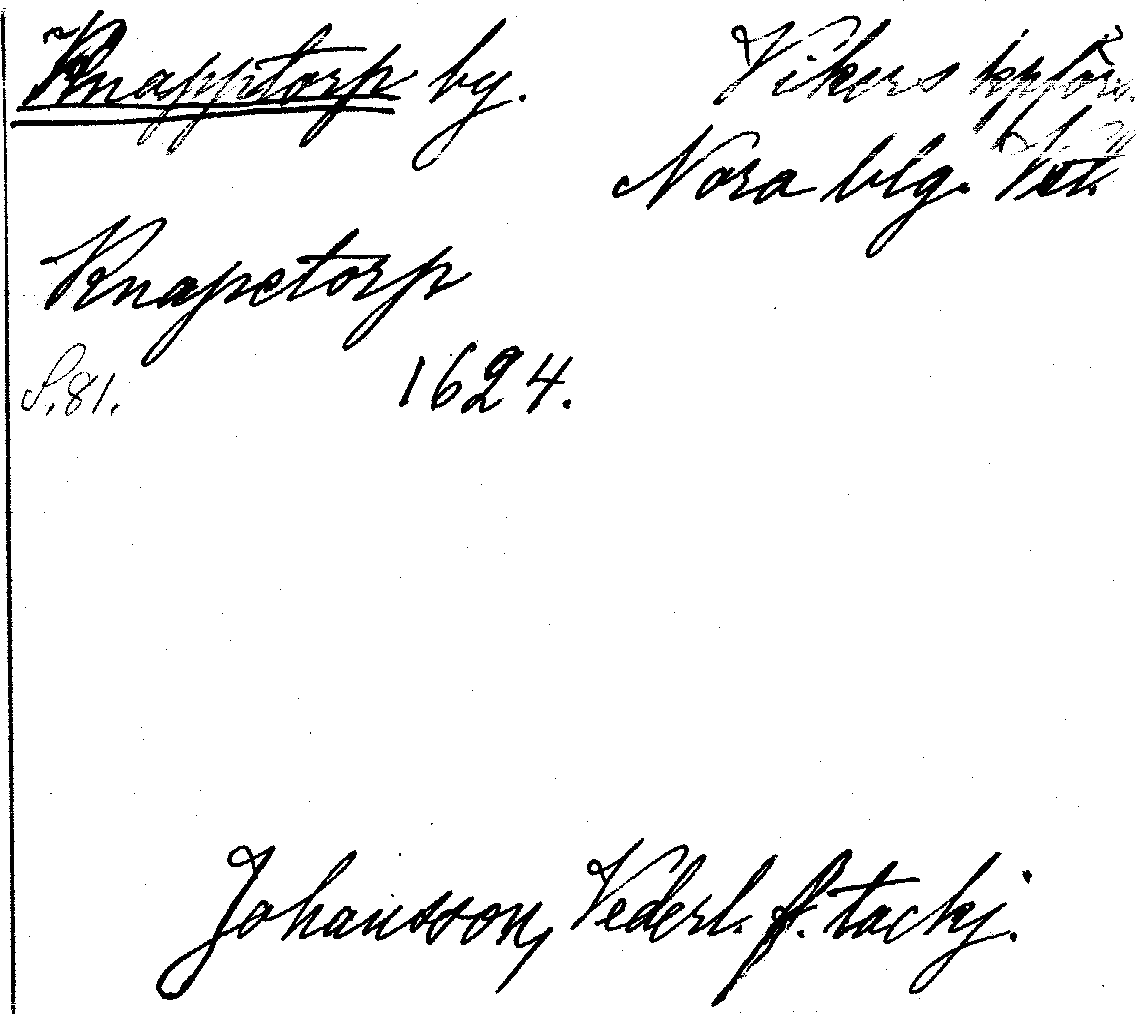 Knapptorp by. Vikers kpförs.
Nora blg. Vstl.
Knapetorp
S. 81. 1624.
Johansson, Vederl. f. tackj.